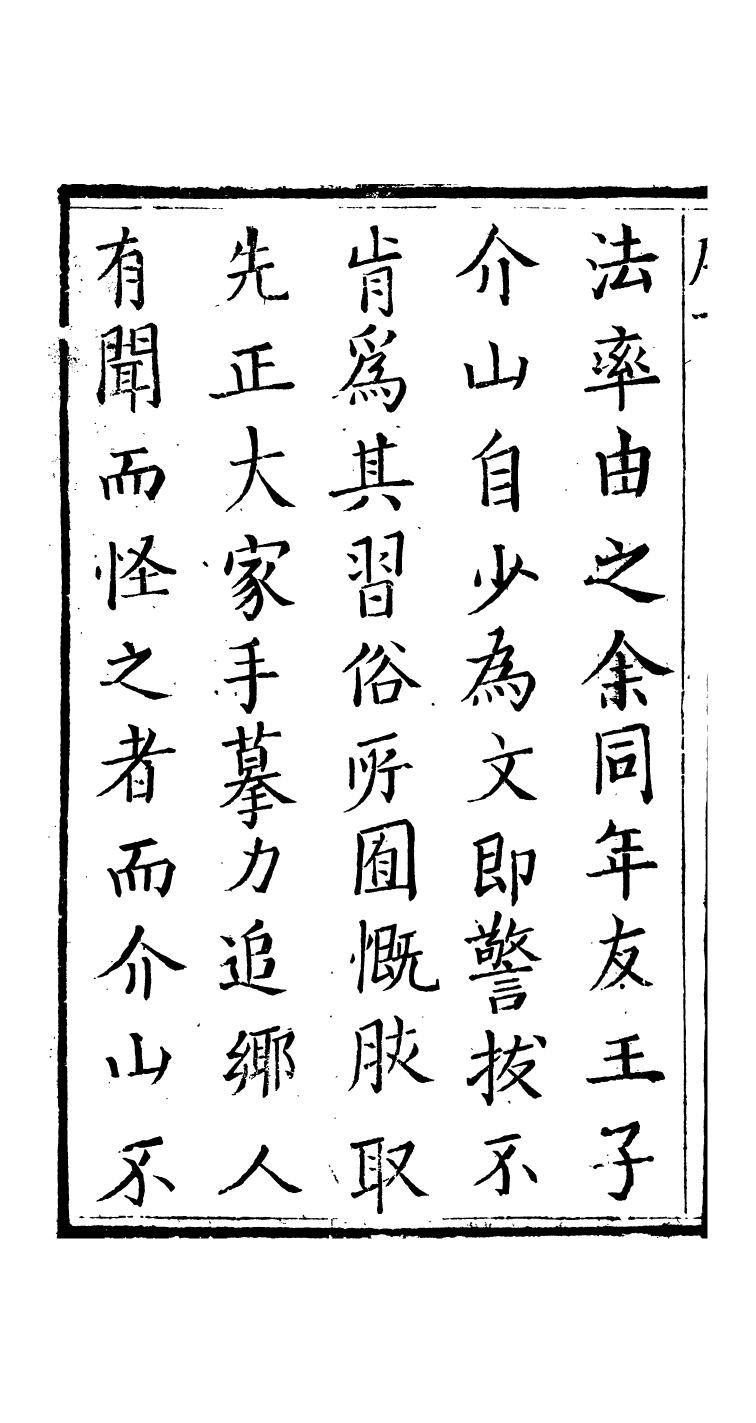 法率由之余同年友王子
介山自少為文即警拔不
肯爲其習俗所囿慨肰取
先正大家手摹力追鄉人
有聞而怪之者而介山不